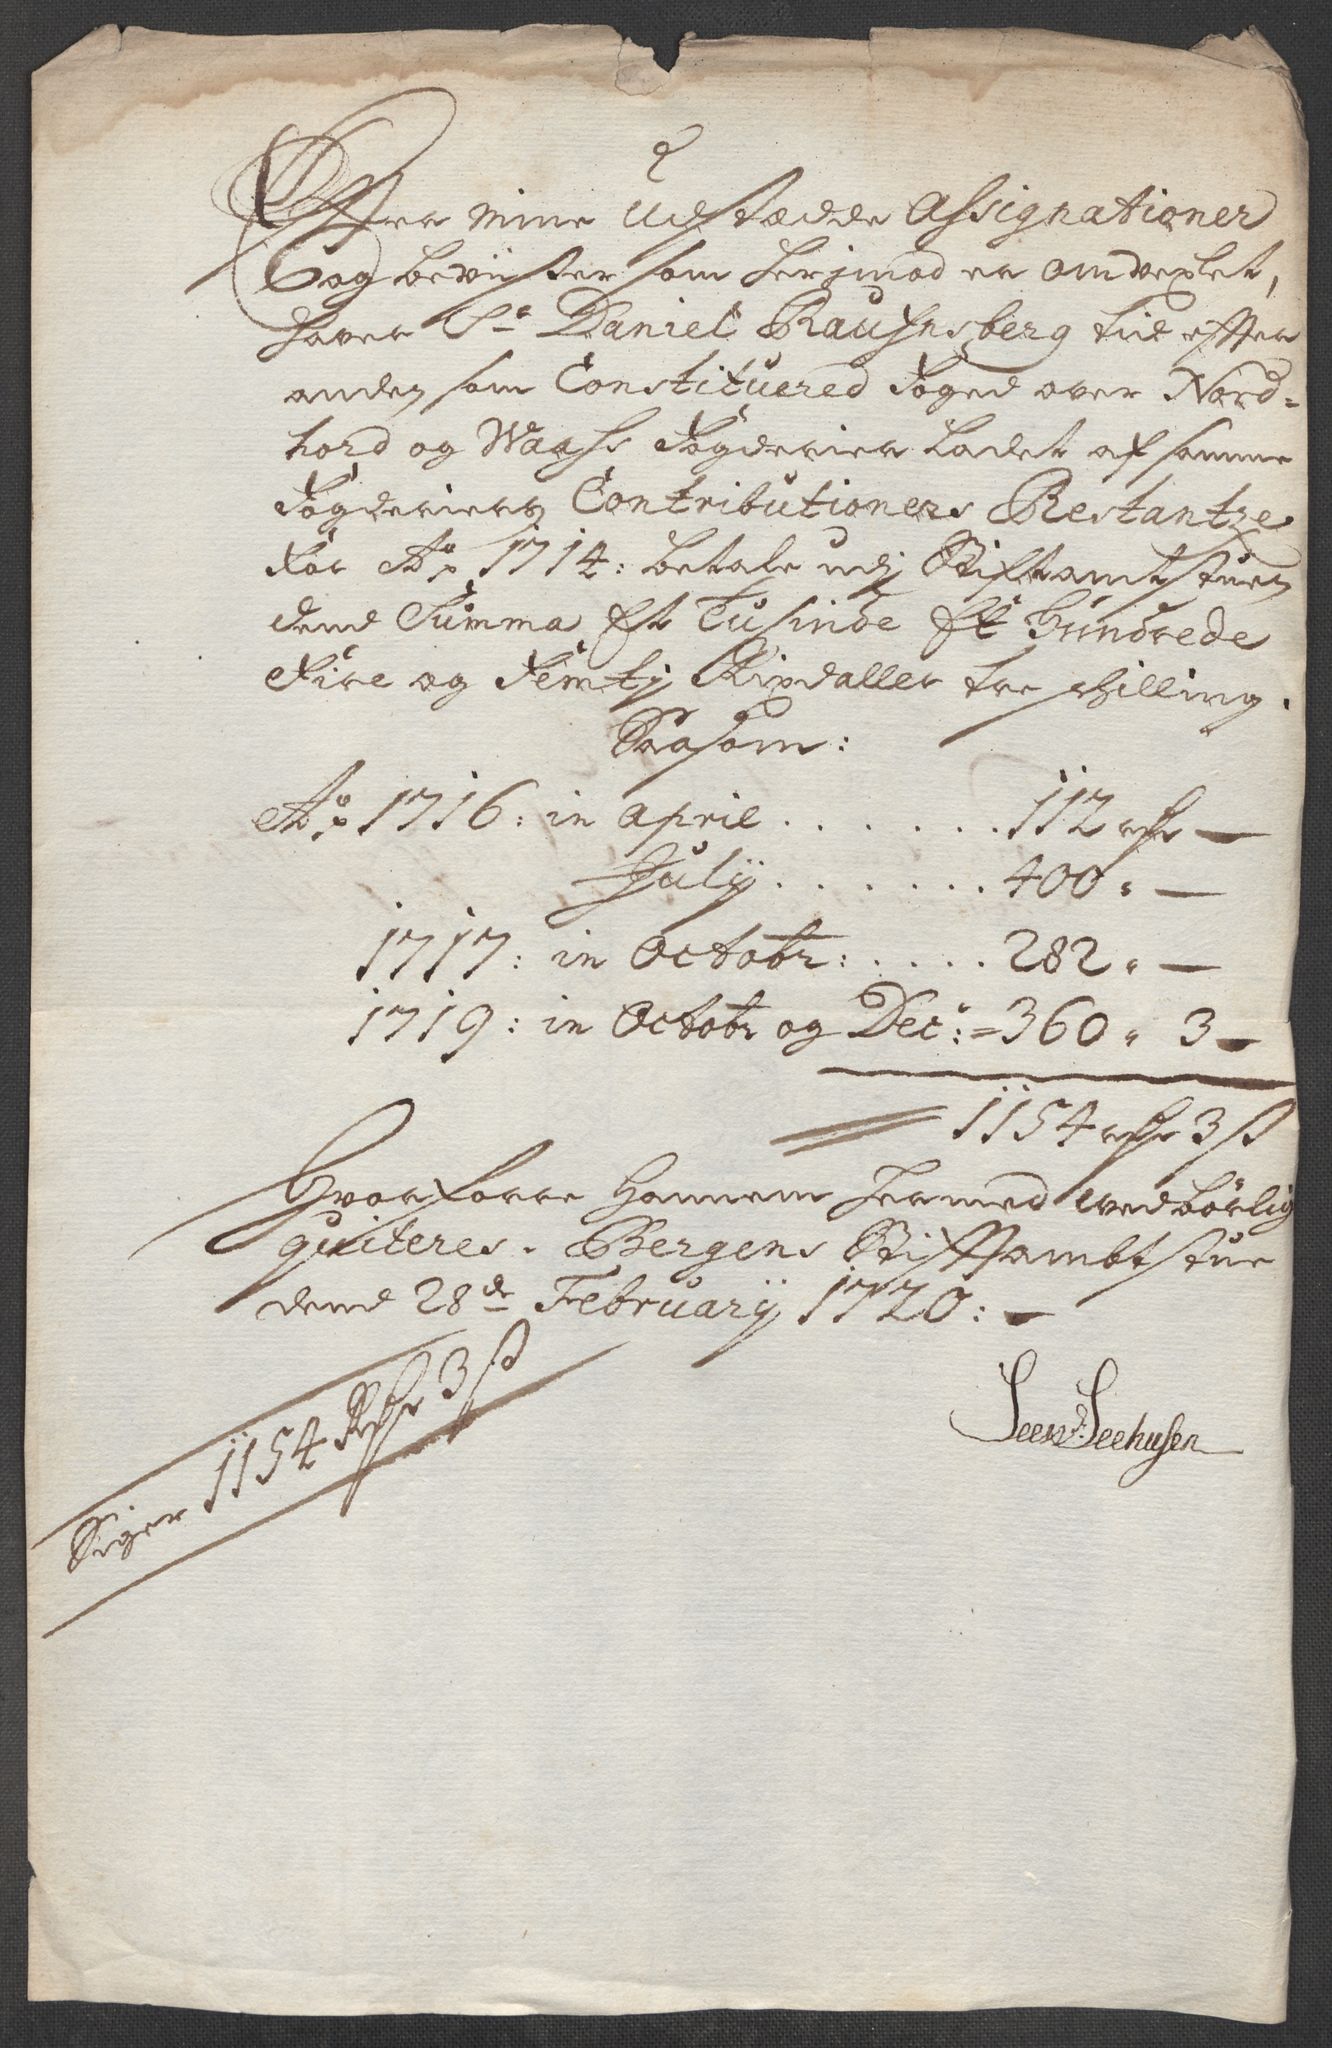 Effter mine Udstædde Assignationer
og beviister som herjmod er omvexlet,
haver Sr Daniel Rausnsberg tid effter
anden som Constituered Foged over Nord-
hord og Waasz Fogderier ladet af samme
Fogderiers Contributioners Restantze
for Ao 1714: betale udj Stiftamtstuen
dend Summa Et Tusinde Et Hundrede
Fire og Femtij Rixdaller tre skilling.
Saasom:
Ao 1716: in April . . . . . . . 112 rdr —
July . . . . . . . 400 „ —
1717: in Octobr: . . . . . 282 „ —
1719: in Octobr og Dec: = 360 „ 3 —
1154 rdr 3 ß
Hvorforre hannem hermed vedbörlig
quiteres. Bergens Stifftambtstue
dend 28de Februarij 1720: —
Seew: Seehusen
Siger 1154 Rdr 3 ß